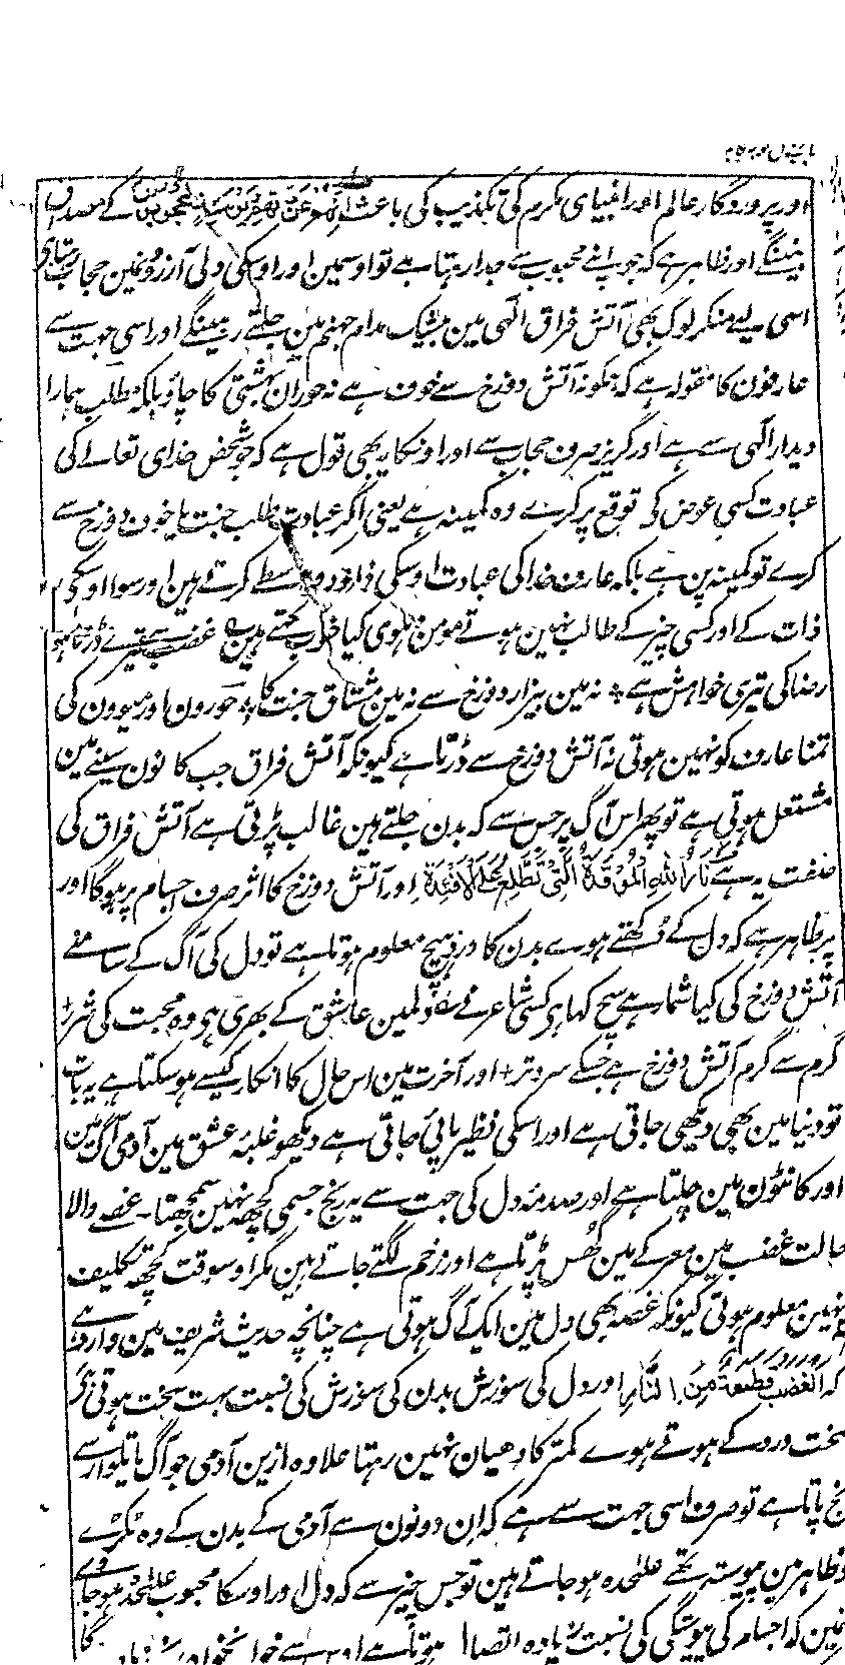 اور پروردگار عالم اور انبیای مکرم کی تکذیب کی باعث کے مصداق
بنینگے اور ظاہر ہے کہ جو اپنے محبوب سے جدا رہتا ہے تو اوسمین اور اوسکی دلی آرزؤنمین حجاب رہتا ہی
اسی لیے منکر لوگ بھی آتش فراق الٰہی مین بیشک مدام جہنم مین جلتے رہینگے اور اسی جہت سے
عارفون کا مقولہ ہے کہ ہمکو نہ آتش دوزخ سے خوف ہے نہ حوران بہشتی کا چاؤ بلکہ مطلب ہمارا
دیدار الٰہی سے ہے اور گریز صرف حجاب سے اور اونکا یہ بھی قول ہے کہ جو شخص خدای تعالے کی
عبادت کسی عوض کی توقع پر کرے وہ کمینہ ہے یعنی اگر عبادت بطلب جنت یا خوف دوزخ سے
کرے تو کمینہ پن ہے بلکہ عارف خدا کی عبادت اوسکی ذات کے واسطے کرتے ہین اور سوا اوسکی
ذات کے اور کسی چیز کے طالب نہین ہوتے مومن دہلوی کیا خوب کہتے ہین غضب سے تیرے ڈرتا ہون
رضا کی تیری خواہش ہے ؞ نہ مین بیزار دوزخ سے نہ مین مشتاق جنت کا ؞ حورون اور میوون کی
تمنا عارف کو نہین ہوتی نہ آتش دوزخ سے ڈرتا ہے کیونکہ آتش فراق جب کانون سینے مین
مشتعل ہوتی ہے تو پھر اس آگ پر جس سے کہ بدن جلتے ہین غالب پڑتی ہے آتش فراق کی
صفت یہ ہے نَارُ اللہِ الْمُوْقَدَۃُ الَّتِیْ تَطَّلِعُ عَلَی الْاَفْئِدَۃِ اور آتش دوزخ کا اثر صرف اجسام پر ہوگا اور
یہ ظاہر ہے کہ دل کے دُکھتے ہوے بدن کا درد ہیچ معلوم ہوتا ہے تو دل کی آگ کے سامنے
آتش دوزخ کی کیا شمار ہے سچ کہا ہی کسی شاعر نے دلمین عاشق کے بھری ہی وہ محبت کی شرر ؞
گرم سے گرم آتش دوزخ ہے جسکے سرد تر ؞ اور آخرت مین اس حال کا انکار کیسے ہو سکتا ہے یہ بات
تو دنیا مین بھی دیکھی جاتی ہے اور اسکی نظیر پائی جاتی ہے دیکھو غلبۂ عشق مین آدمی آگ مین
اور کانٹون مین چلتا ہے اور صدمۂ دل کی جہت سے یہ رنج جسمی کچھ نہین سمجھتا۔ غصے والا
حالت غضب مین معرکے مین گھس پڑتا ہے اور زخم لگتے جاتے ہین مگر اوسوقت کچھ تکلیف
نہین معلوم ہوتی کیونکہ غصہ بھی دل مین ایک آگ ہوتی ہے چنانچہ حدیث شریف مین وارد ہے
کہ الغضب قطعۃ مِنَ النَّارِ اور دل کی سوزش بدن کی سوزش کی نسبت بہت سخت ہوتی ہے اور
سخت درد کے ہوتے ہوے کمتر کا دھیان نہین رہتا علاوہ ازین آدمی جو آگ یا تلوار سے
رنج پاتا ہے تو صرف اسی جہت سے ہے کہ ان دونون سے آدمی کے بدن کے وہ ٹکڑے
جو ظاہر مین پیوستہ تھے علٰحدہ ہو جاتے ہین تو جس چیز سے کہ دل اور اوسکا محبوب علٰحدہ ہو جاوے
جنمین کہ اجسام کی پیوستگی کی نسبت زیادہ اتصال ہوتا ہے اوس سے خواہ نخواہ زیادہ ہوگا